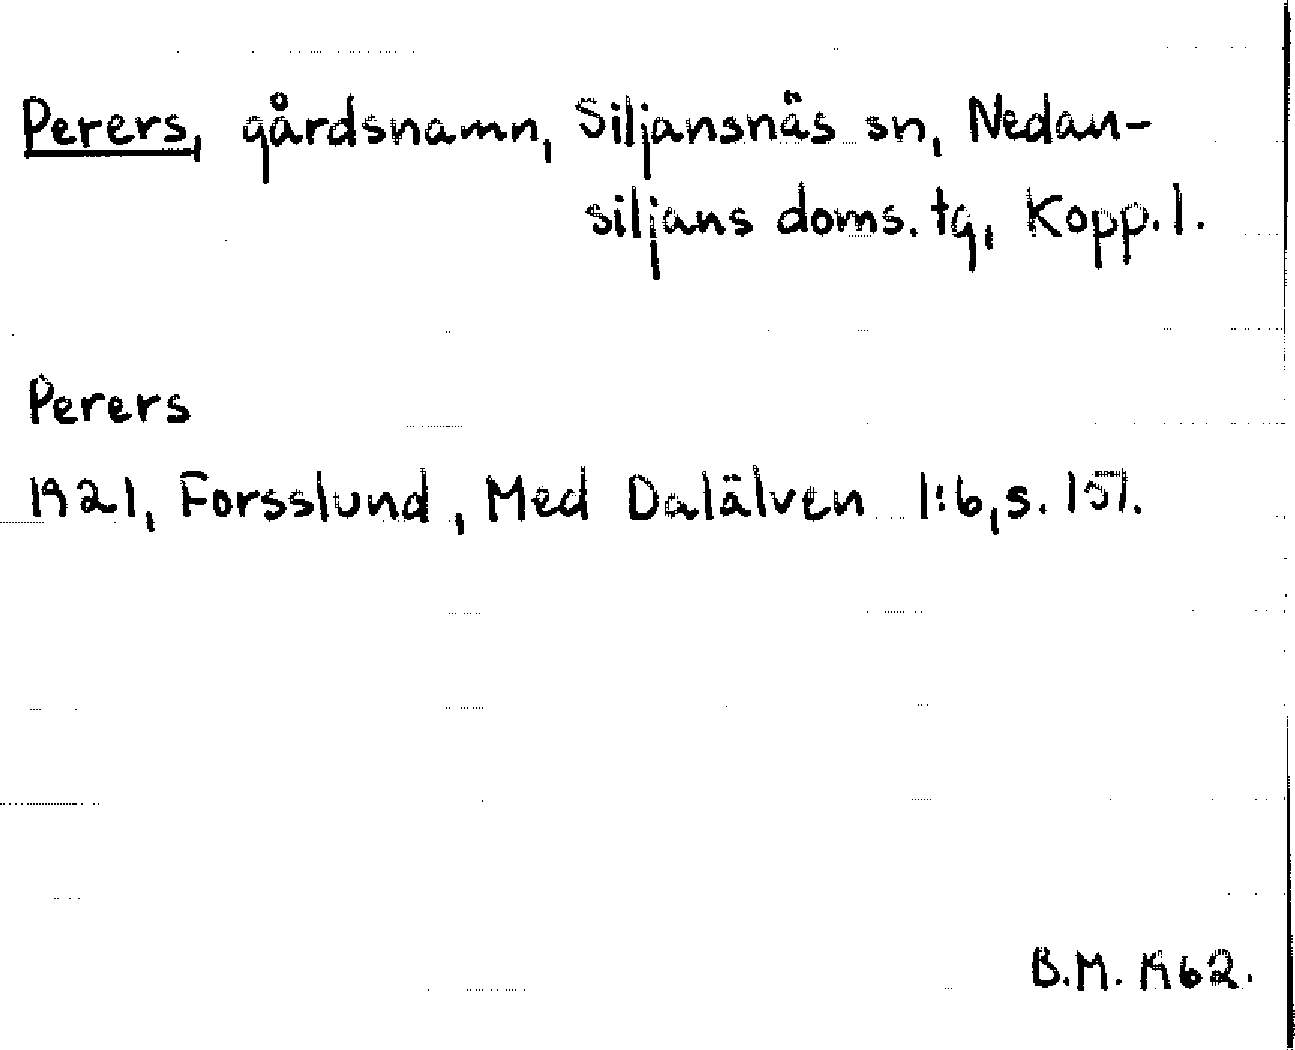 Perers, gårdsnamn, Siljansnäs sn, Nedan-
siljans doms. tg, Kopp. l.
Perers
1921, Forsslund, Med Dalälven 1:6, s. 151.
B.M. 1962.